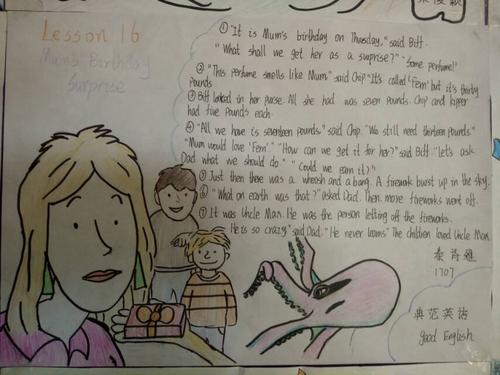 Lesson 16
Mum's Birthday
Surprise
① "It is Mum's birthday on Thursday," said Biff.
"What shall we get her as a surprise?" "Some perfume!"
② "This perfume smells like Mum" said Chip "It's called 'Fern' but it's thirty
pounds
③ Biff looked in her purse. All she had was seven pounds. Chip and Kipper
had five pounds each.
④ "All we have is seventeen pounds" said Chip. "We still need thirteen pounds"
"Mum would love 'Fern'." "How can we get it for her?" said Biff. "Let's ask
Dad what we should do." "Could we earn it?"
⑤ Just then there was a whoosh and a bang. A firework burst up in the sky.
⑥ "What on earth was that?" asked Dad. Then more fireworks went off.
⑦ It was Uncle Max. He was the person letting off the fireworks.
He is so crazy" said Dad. "He never learns" The children loved Uncle Max.
1707
典范英语
good English